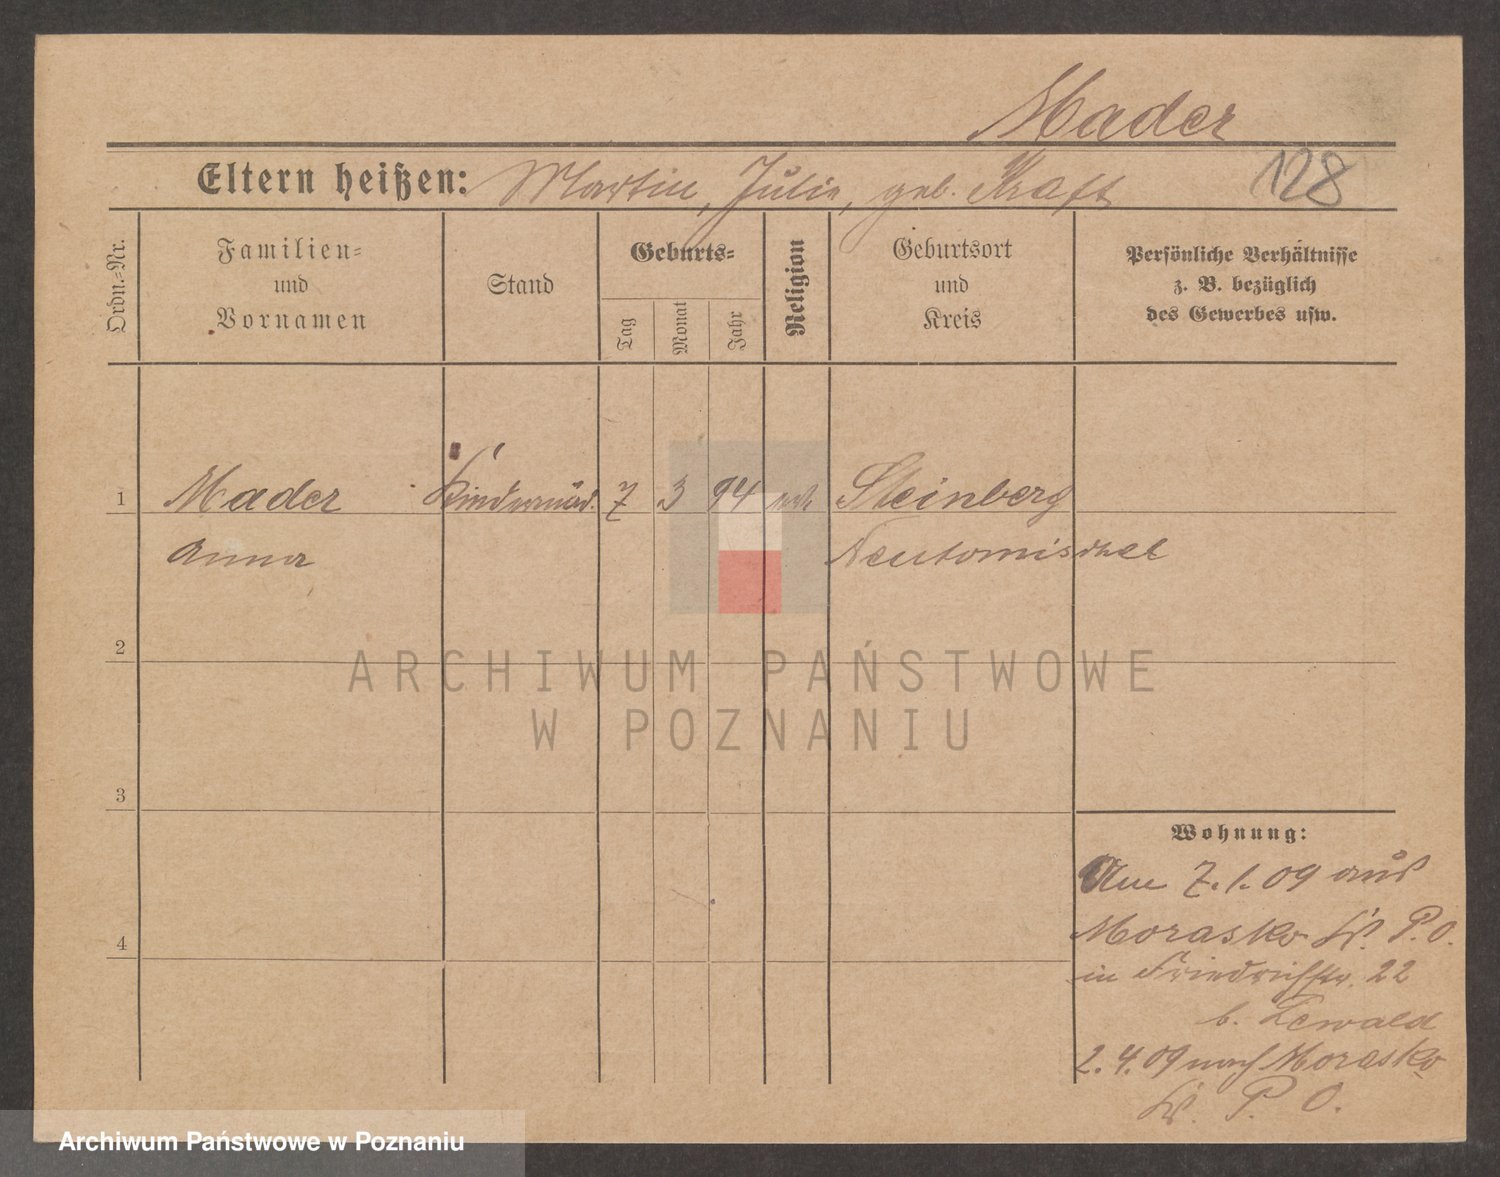 Mader
Eltern heißen: Martin, Julie, geb. Kraft
128
Ordn.=Nr.
Familien=
und
Vornamen
Stand
Geburts=
Tag
Monat
Jahr
Religion
Geburtsort
und
Kreis
Persönliche Verhältnisse
z. B. bezüglich
des Gewerbes usw.
1 Mader Kindermäd. 7 3 94 Steinberg
Anna Neutomischel
2
ARCHIWUM PAŃSTWOWE
W POZNANIU
3
Wohnung:
Am 7.1.09 aus
Morasko Kr. P. O.
4
in Friedrichstr. 22
b. Lewald
2.4.09 nach Morasko
Kr. P. O.
Archiwum Państwowe w Poznaniu